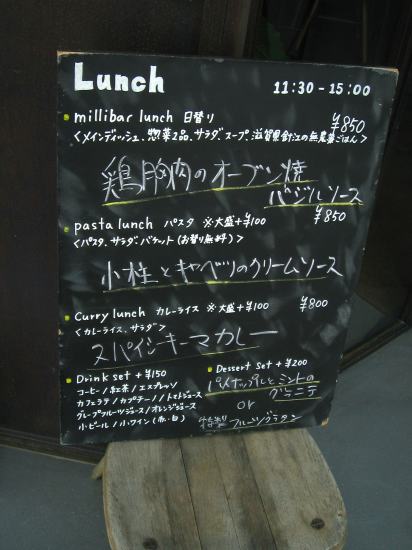 Lunch 11:30-15:00
millibar lunch 日替り ¥850
<メインディッシュ、惣菜2品、サラダ、スープ、滋賀県針江の無農薬ごはん>
鶏胸肉のオーブン焼
バジルソース
pasta lunch パスタ ※大盛+¥100 ¥850
<パスタ、サラダ、バケット(お替り無料)>
小柱とキャベツのクリームソース
Curry lunch カレーライス ※大盛+¥100 ¥800
<カレーライス、サラダ>
スパイシーキーマカレー
Drink set +¥150
コーヒー/紅茶/エスプレッソ
カフェラテ/カプチーノ/トマトジュース
グレープフルーツジュース/オレンジジュース
小ビール/小ワイン(赤・白)
Dessert set +¥200
パイナップルとミントの
グラニテ
or
特製フルーツグラタン